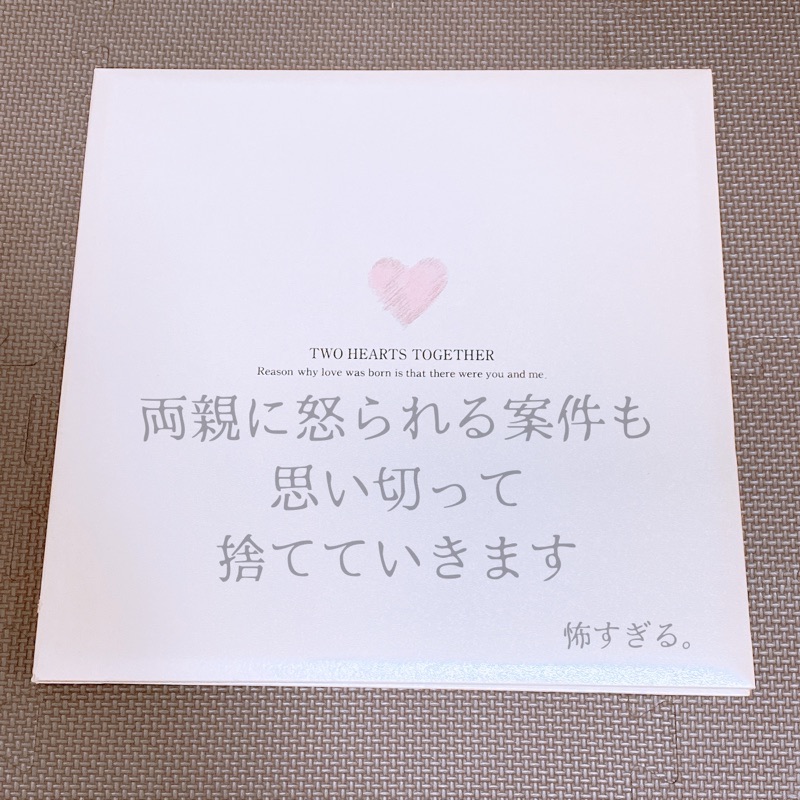 TWO HEARTS TOGETHER
Reason why love was born is that there were you and me.
両親に怒られる案件も
思い切って
捨てていきます
怖すぎる。